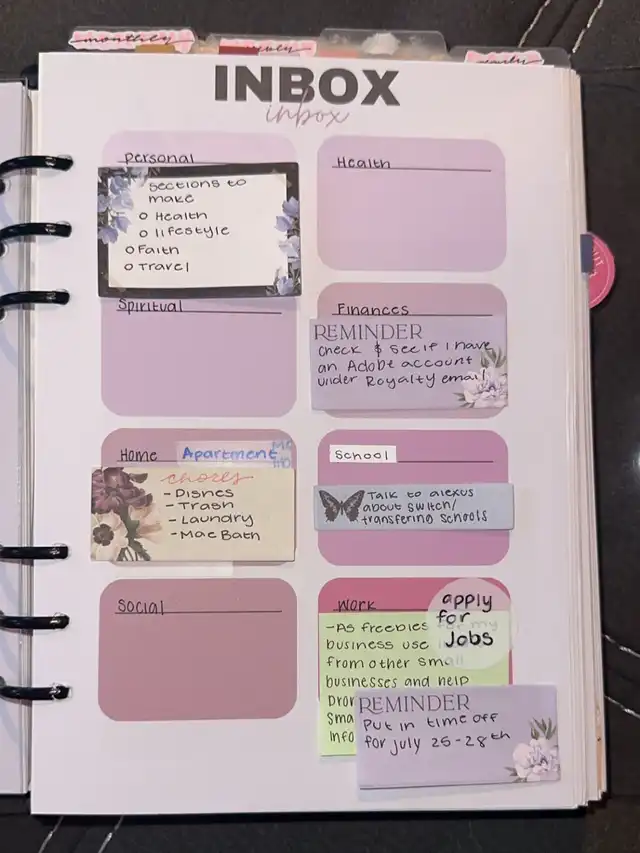 monthly
INBOX
inbox
Personal
Sections to
make
o Health
o lifestyle
o Faith
o Travel
Health
Spiritual
Finances
REMINDER
Check & see if I have
an Adobe account
under Royalty email
Home Apartment
chores
- Dishes
- Trash
- Laundry
- Mac Bath
School
Talk to alexus
about switch/
transfering schools
Social
Work
apply
for
Jobs
- As freebies for my
business use
from other small
businesses and help
Sma
Info
REMINDER
Put in time off
for July 25-28th